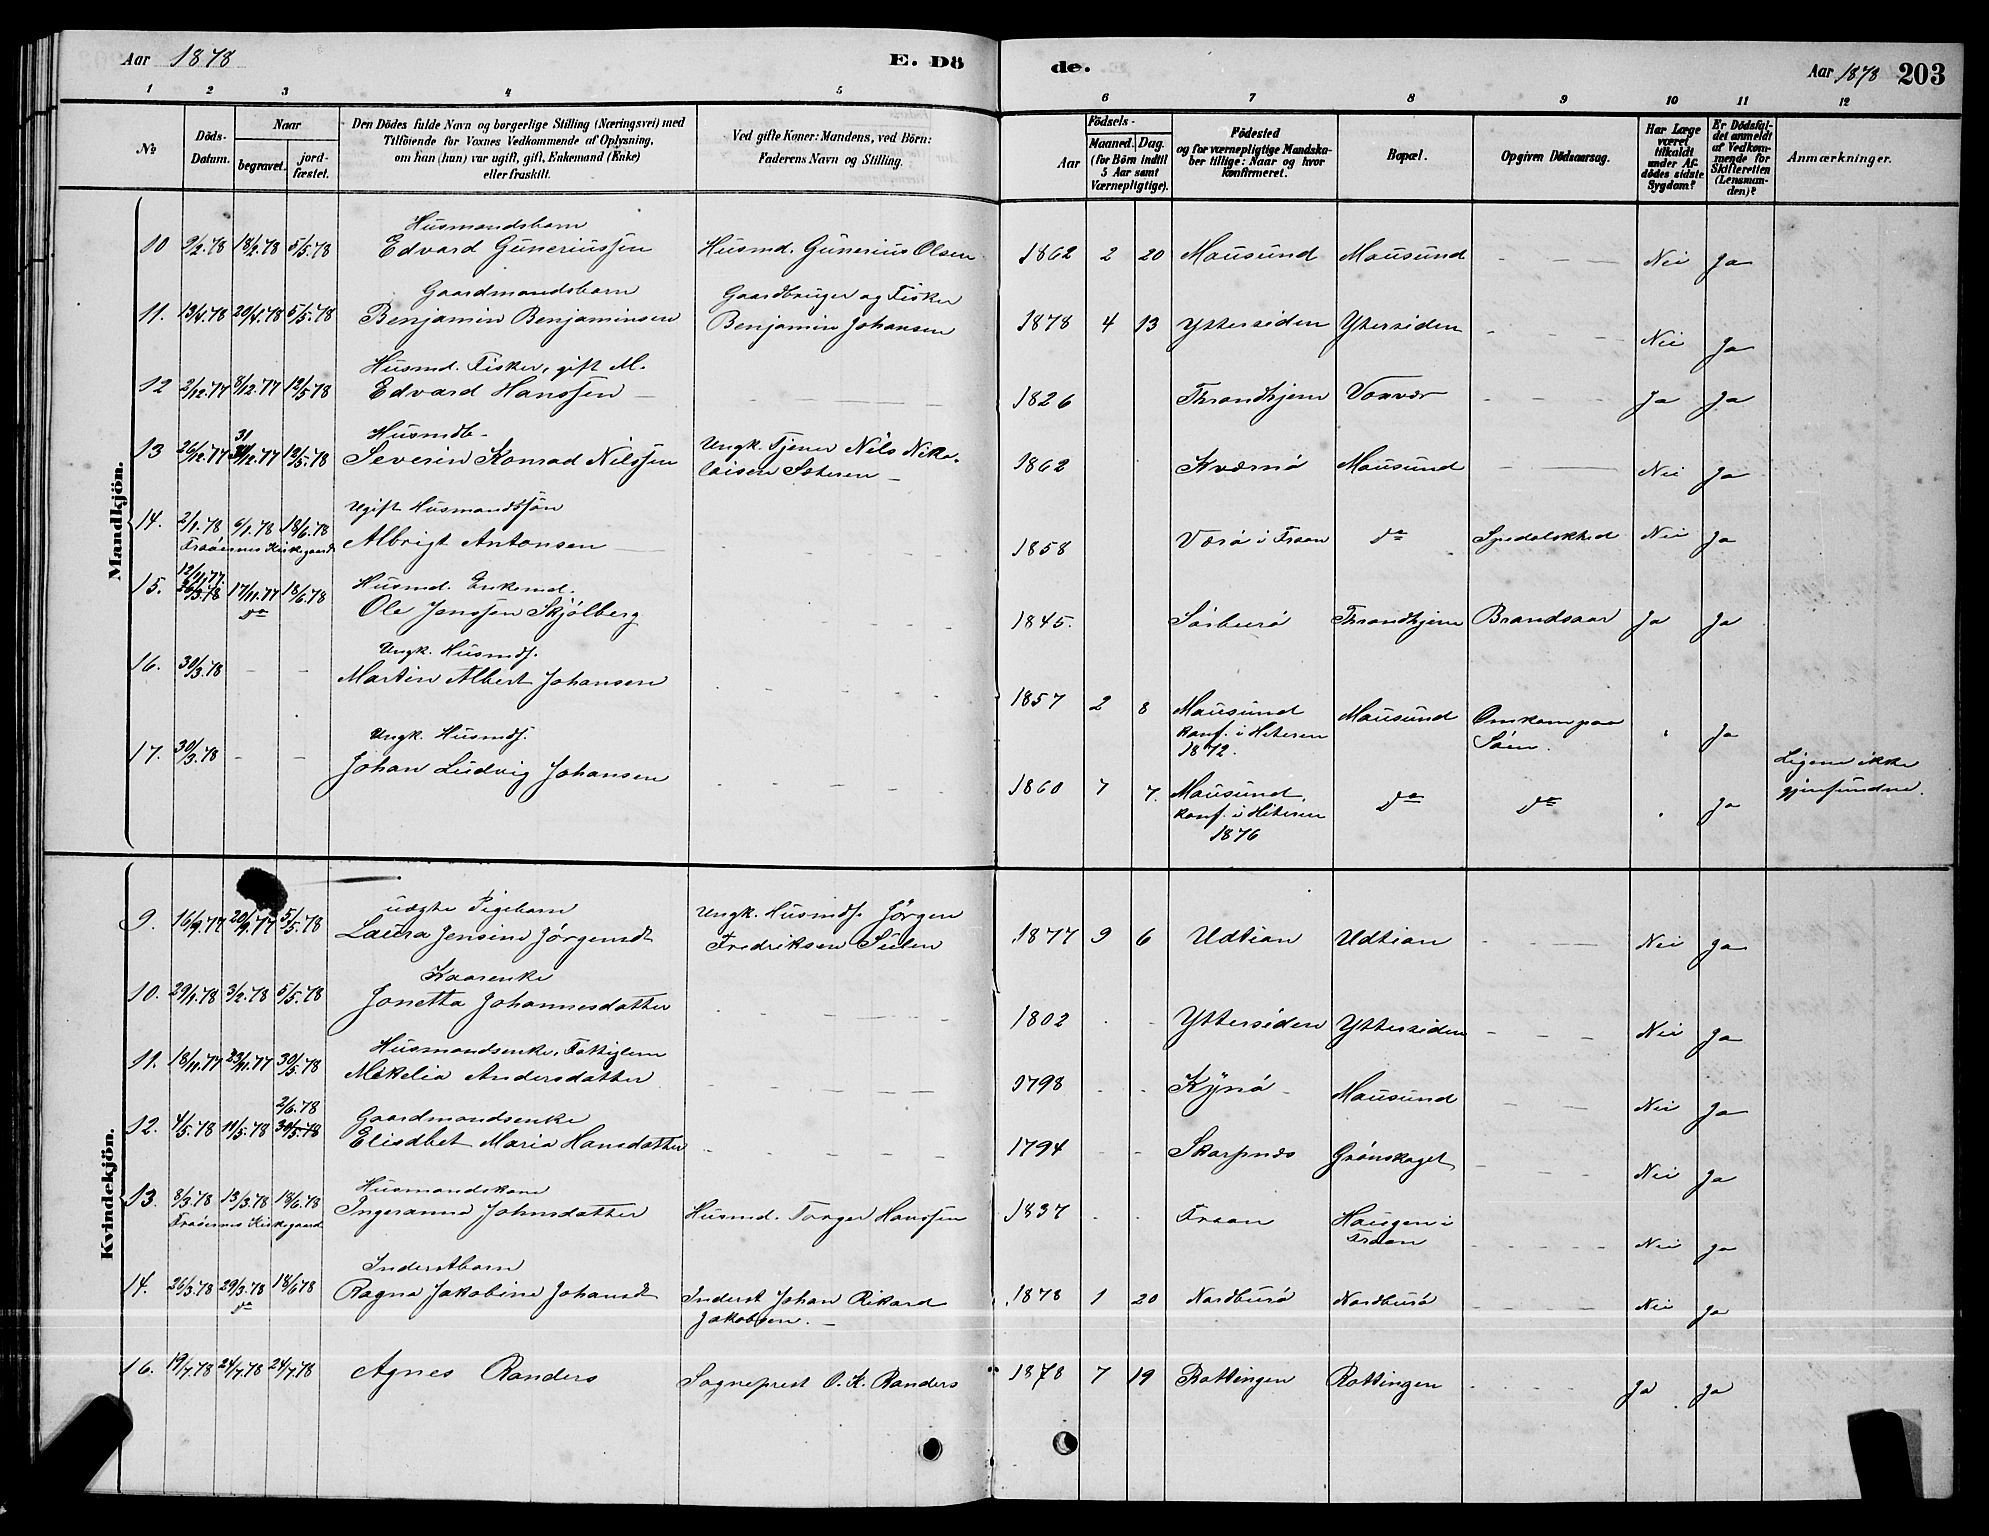 Aar 1878 E. Dö de. Aar 1878 203
1 2 3 4 5 6 7 8 9 10 11 12
№
Döds-Datum.
Naar
begravet.
jord-fæstet.
Den Dödes fulde Navn og borgerlige Stilling (Næringsvei) med
Tilföiende for Voxnes Vedkommende af Oplysning,
om han (hun) var ugift, gift, Enkemand (Enke)
eller fraskilt.
Ved gifte Koner: Mandens, ved Börn:
Faderens Navn og Stilling.
Födsels-
Aar
Maaned. Dag.
(for Börn indtil
5 Aar samt
Værnepligtige).
Födested
og for værnepligtige Mandska-
ber tillige: Naar og hvor
konfirmeret.
Bopæl.
Opgiven Dödsaarsag.
Har Læge
været
tilkaldt
under Af-
dödes sidste
Sygdom?
Er Dödsfal-
det anmeldt
af Vedkom-
mende for
Skifteretten
(Lensman-
den)?
Anmærkninger.
Mandkjön.
Husmandsbarn
10 9/2.78 18/2.78 5/5.78 Edvard Guneriussen Husmd. Gunerius Olsen 1862 2 20 Mausund Mausund - - - Nei Ja
Gaardmandsbarn Gaardbruger og Fisker
11. 13/4.78 20/4.78 5/5.78 Benjamin Benjaminsen Benjamin Johansen 1878 4 13 Yttersiden Ytersiden - - - Nei Ja
Husmd. Fisker, gift M.
12 2/12.77 8/12.77 12/5.78 Edvard Hanssen - - - 1826 Throndhjem Vaxvær - - - Ja Ja
31 Husmdb. Ungk. Tjener Nils Niko-
13 26/12.77 /12.77 12/5.78 Severin Konrad Nilssen laisen 1862 Kværnö Mausund - - Nei Ja
Ugift Husmandssön
14. 2/1.78 6/1.78 18/6.78 Albrigt Antonsen 1858 Værö i Froan do Spedalskhed Nei Ja
Froöernes Kirkegaard
12/11.77 Husmd. Enkemd.
15. 26/3.78 17/11.77 18/6.78 Ole Jenssen Skjölberg - - - 1845. Sörburö Throndhjem Brandsaar Ja Ja
do
Ungk. Husmds.
16. 30/3.78 - - Martin Albert Johansen - - - 1857 2 8 Mausund Mausund Omkom paa . Ja
konf. i Hiteren Söen.
1872.
Ungk. Husmds.
17. 30/3.78 - - Johan Ludvig Johansen - - - 1860 7 7. Mausund do do . Ja Ligene ikke
konf. i Hiteren gjenfundne.
1876
Kvindekjön.
uægte Pigebarn Ungk. Husmds. Jörgen
9. 16/9.77 20/9.77 5/5.78 Laura Jensine Jörgensdt Fredriksen 1877 9 6 Udtian Udtian - - - Nei Ja
Kaarenke
10. 29/1.78 3/2.78 5/5.78 Jonetta Johannesdatter - - - 1802 . . Yttersiden Yttersiden - - - Nei Ja
Husmandsenke, Fattiglem
11. 18/11.77 23/11.77 30/5.78 Mekelia Andersdatter - - - 1798 - - Kÿnö Mausund - - - Nei Ja
2/6.78 Gaardmandsenke
12. 4/5.78 11/5.78 30/5.78 Elisabet Maria Hansdatter - - - 1794 - - Skarpnes Grönskaget - - - Nei Ja
Husmandskone
13. 8/3.78 13/3.78 18/6.78 Ingeranna Johnsdatter Husmd. Torger Hanssen 1837 . . Froan Haugen i - - - Nei Ja
Froöernes Kirkegaard Froan
Inderstbarn
14. 26/3.78 29/3.78 18/6 78 Ragna Jakobine Johansdt Inderst Johan Rikard 1878 1 20 Nordburö Nordburö - - - Nei Ja
do Jakobsen.
16. 19/7.78 24/7.78 24/7.78 Agnes Randers Sogneprest O. K. Randers 1878 7 19 Rottingen Rottingen - - - Ja Ja